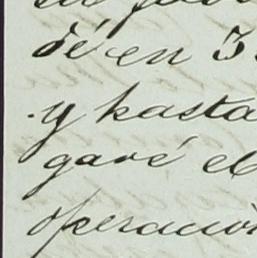 dé en 3
y hasta
garé el
operación